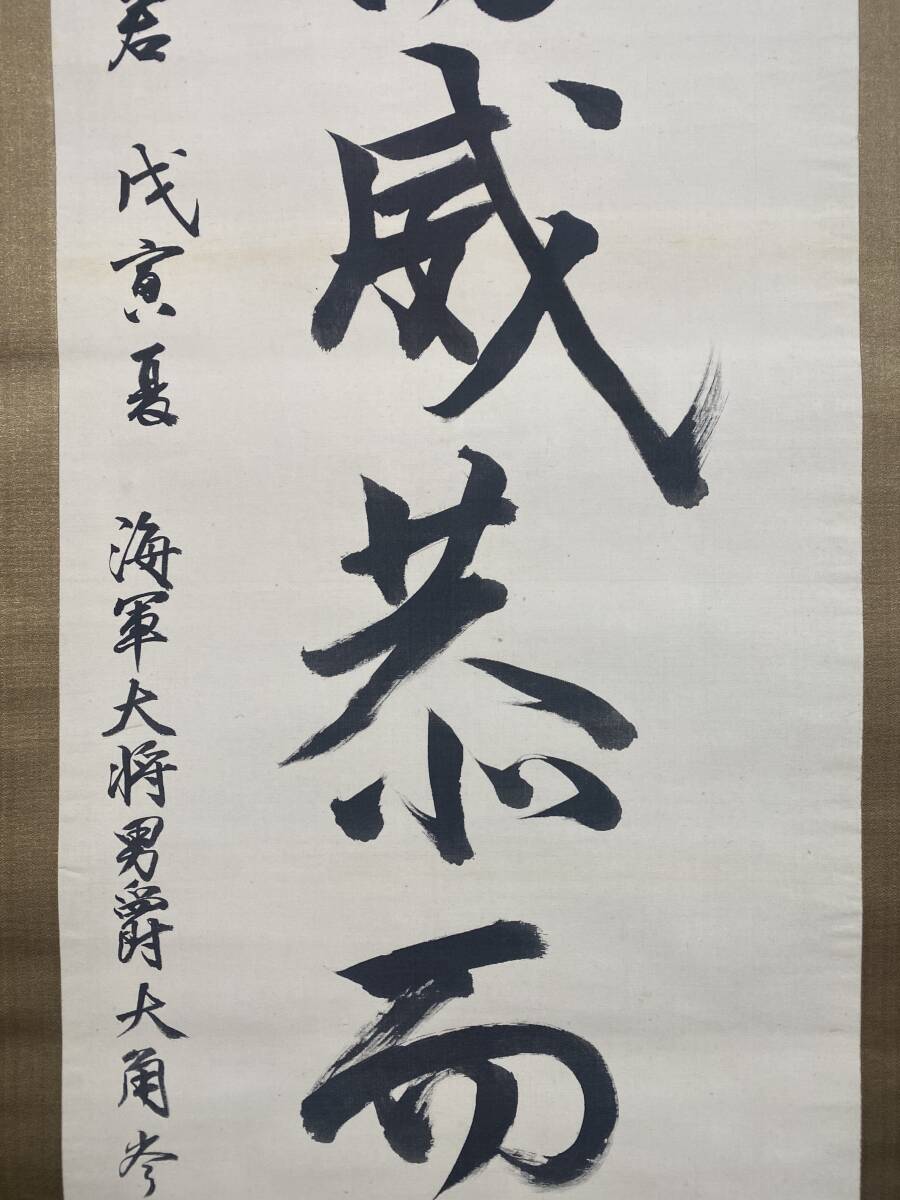 威恭而
君 戊寅夏 海軍大将男爵大角岑